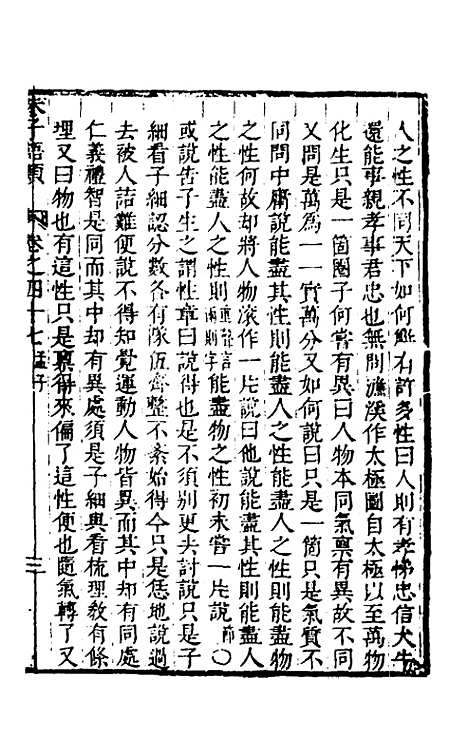 人之性不同天下如何解有許多性曰人則有孝悌忠信犬牛
還能事親孝事君忠也無問濂溪作太極圖自太極以至萬物
化生只是一箇圈子何嘗有異曰人物本同氣禀有異故不同
又問是萬為一一實萬分又如何說曰只是一箇只是氣質不
同問中庸說能盡其性則能盡人之性能盡人之性則能盡物
之性何故却將人物滚作一片說曰他說能盡其性則能盡人
之性能盡人之性則重聲言兩則字能盡物之性初未嘗一片說節〇
或說告子生之謂性章曰說得也是不須別更去討說只是子
細看子細認分數各有隊伍齊整不紊始得今只是恁地說過
去被人詰難便說不得知覺運動人物皆異而其中却有同處
仁義禮智是同而其中却有異處須是子細與看梳理教有條
理又曰物也有這性只是禀得來偏了這性便也隨氣轉了又
朱子語類 卷之四十七 孟子 三